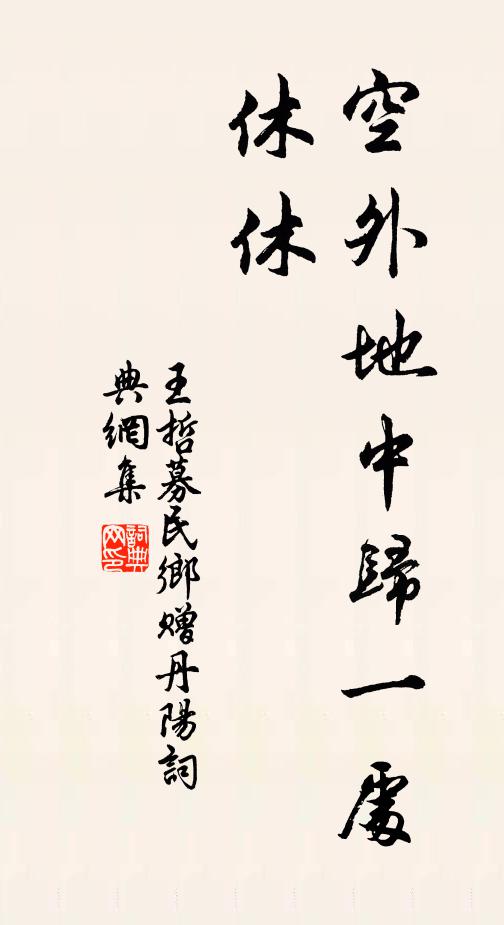 空外地中歸一處
休休
王哲慕民鄉贈丹陽詞
典網集
詞典
网印